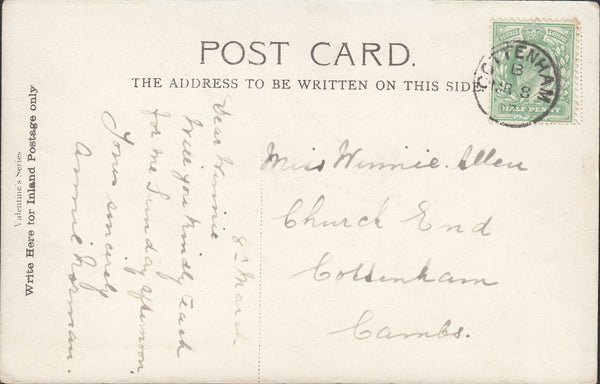 POST CARD.
THE ADDRESS TO BE WRITTEN ON THIS SIDE
Valentine's Series
Write Here for Inland Postage only
8 March
Dear Winnie
Will you kindly teach
for me Sunday afternoon.
Yours sincerely
Annie Norman.
Miss Winnie Allen
Church End
Cottenham
Cambs.
COTTENHAM
B
MR 8
HALF PENNY